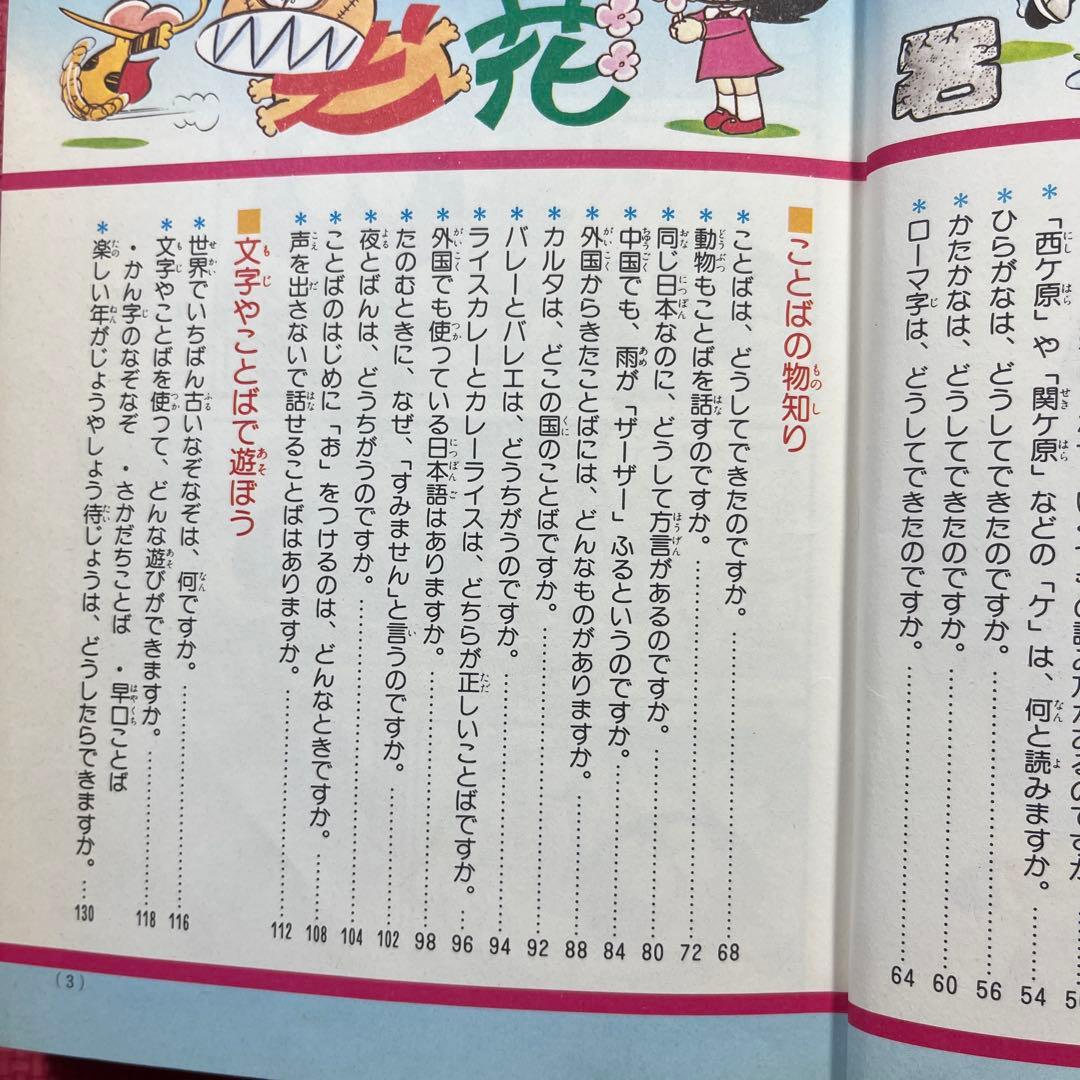 「西ケ原」や「関ケ原」などの「ケ」は、何と読みますか。……54
ひらがなは、どうしてできたのですか。……56
かたかなは、どうしてできたのですか。……60
ローマ字は、どうしてできたのですか。……64
花
■ことばの物知り
*ことばは、どうしてできたのですか。……68
*動物もことばを話すのですか。……72
*同じ日本なのに、どうして方言があるのですか。……80
*中国でも、雨が「ザーザー」ふるというのですか。……84
*外国からきたことばには、どんなものがありますか。……88
*カルタは、どこの国のことばですか。……92
*バレーとバレエは、どうちがうのですか。……94
*ライスカレーとカレーライスは、どちらが正しいことばですか。…96
*外国でも使っている日本語はありますか。……98
*たのむときに、なぜ、「すみません」と言うのですか。……102
*夜とばんは、どうちがうのですか。……104
*ことばのはじめに「お」をつけるのは、どんなときですか。……108
*声を出さないで話せることばはありますか。……112
■文字やことばで遊ぼう
*世界でいちばん古いなぞなぞは、何ですか。……116
*文字やことばを使って、どんな遊びができますか。……118
・かん字のなぞなぞ ・さかだちことば ・早口ことば
*楽しい年がじょうやしょう待じょうは、どうしたらできますか。…130
(3)